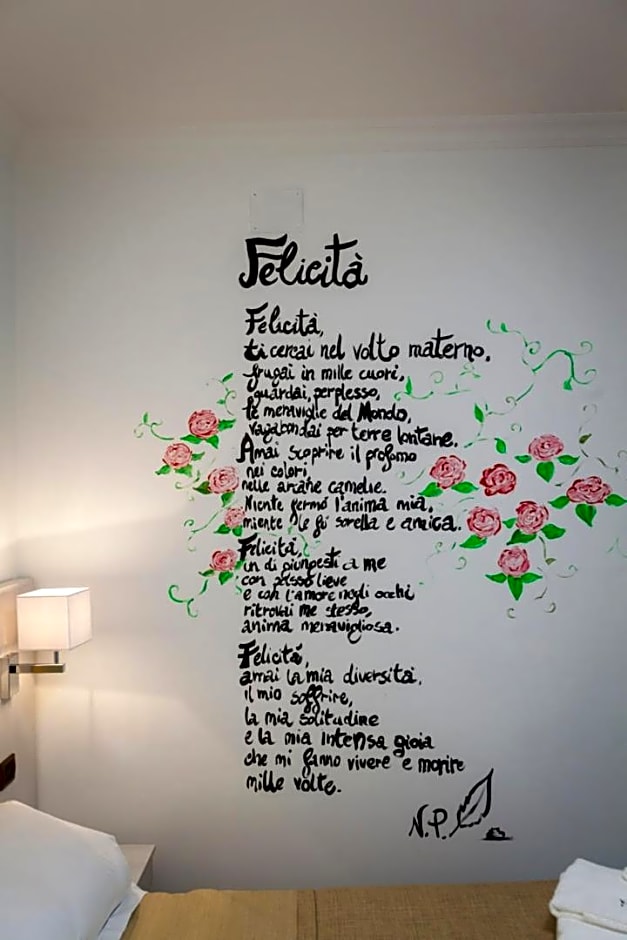 Felicità
Felicità,
ti cercai nel volto materno,
frugai in mille cuori,
guardai, perplesso,
le meraviglie del Mondo,
vagabondai per terre lontane.
Amai scoprire il profumo
nei colori,
nelle arcane camelie.
Niente fermó l'anima mia,
niente le fú sorella e amica.
Felicità,
un di giungesti a me
con passo lieve
e con l'amore negli occhi
ritrovai me stesso,
anima meravigliosa.
Felicità,
amai la mia diversità,
il mio soffrire,
la mia solitudine
e la mia intensa gioia
che mi fanno vivere e morire
mille volte.
N.P.